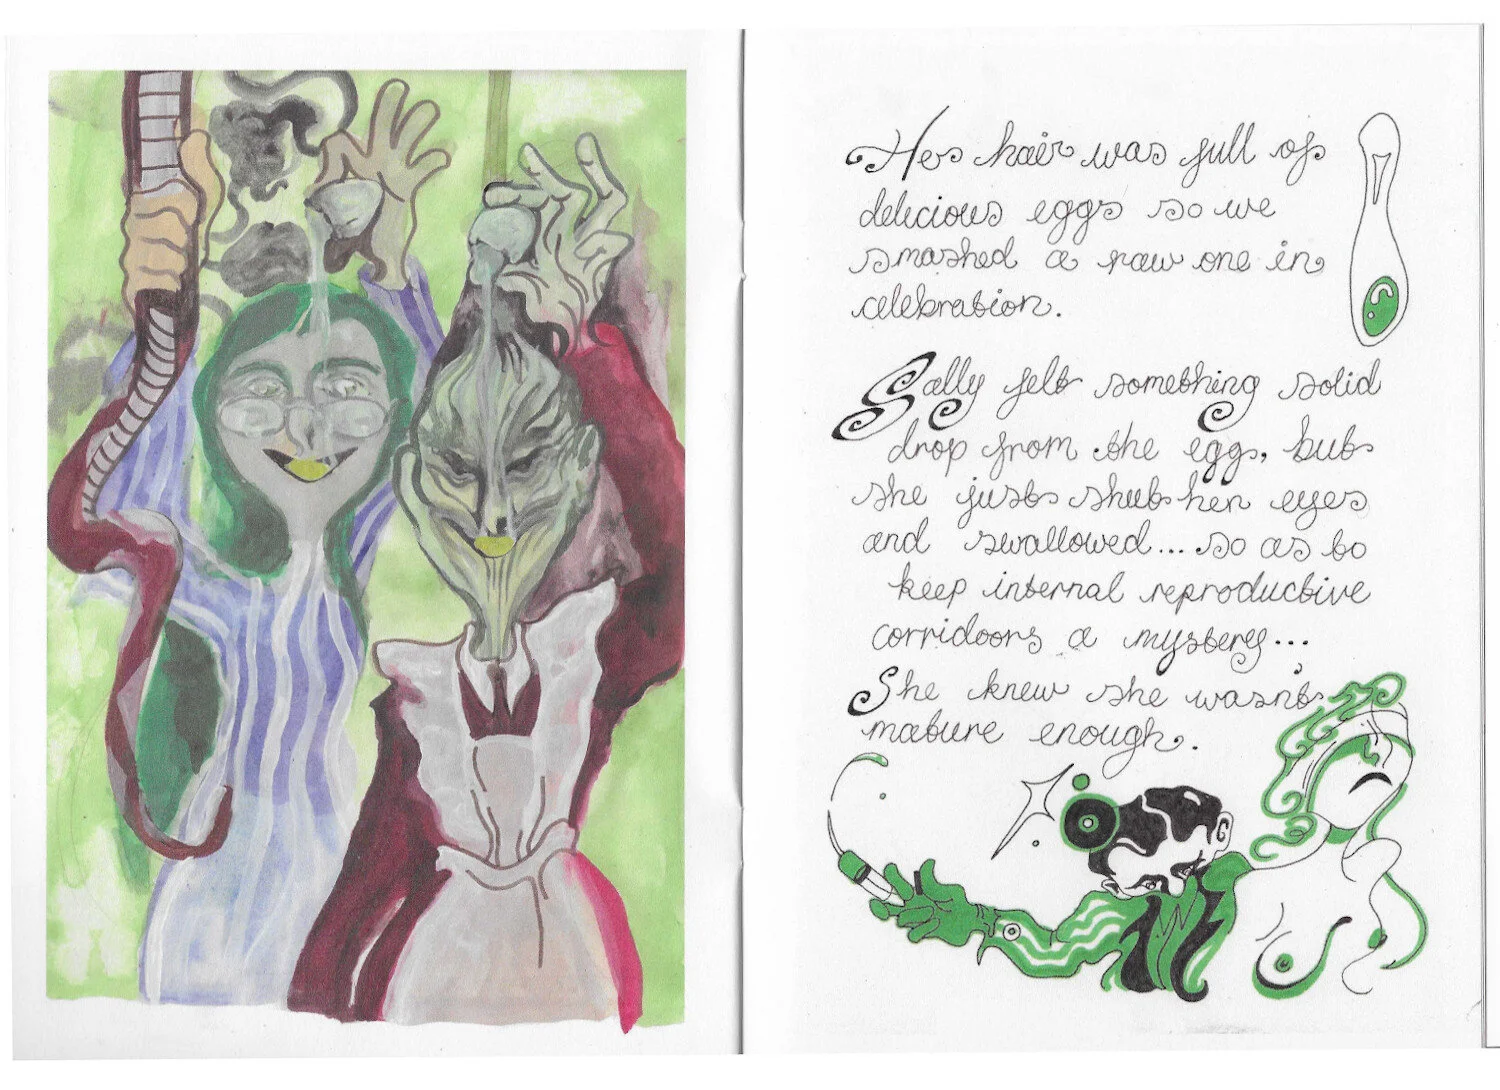 Her hair was full of
delicious eggs so we
smashed a raw one in
celebration.
Sally felt something solid
drop from the egg, but
she just shut her eyes
and swallowed... so as to
keep internal reproductive
corridoors a mystery...
She knew she wasn't
mature enough.